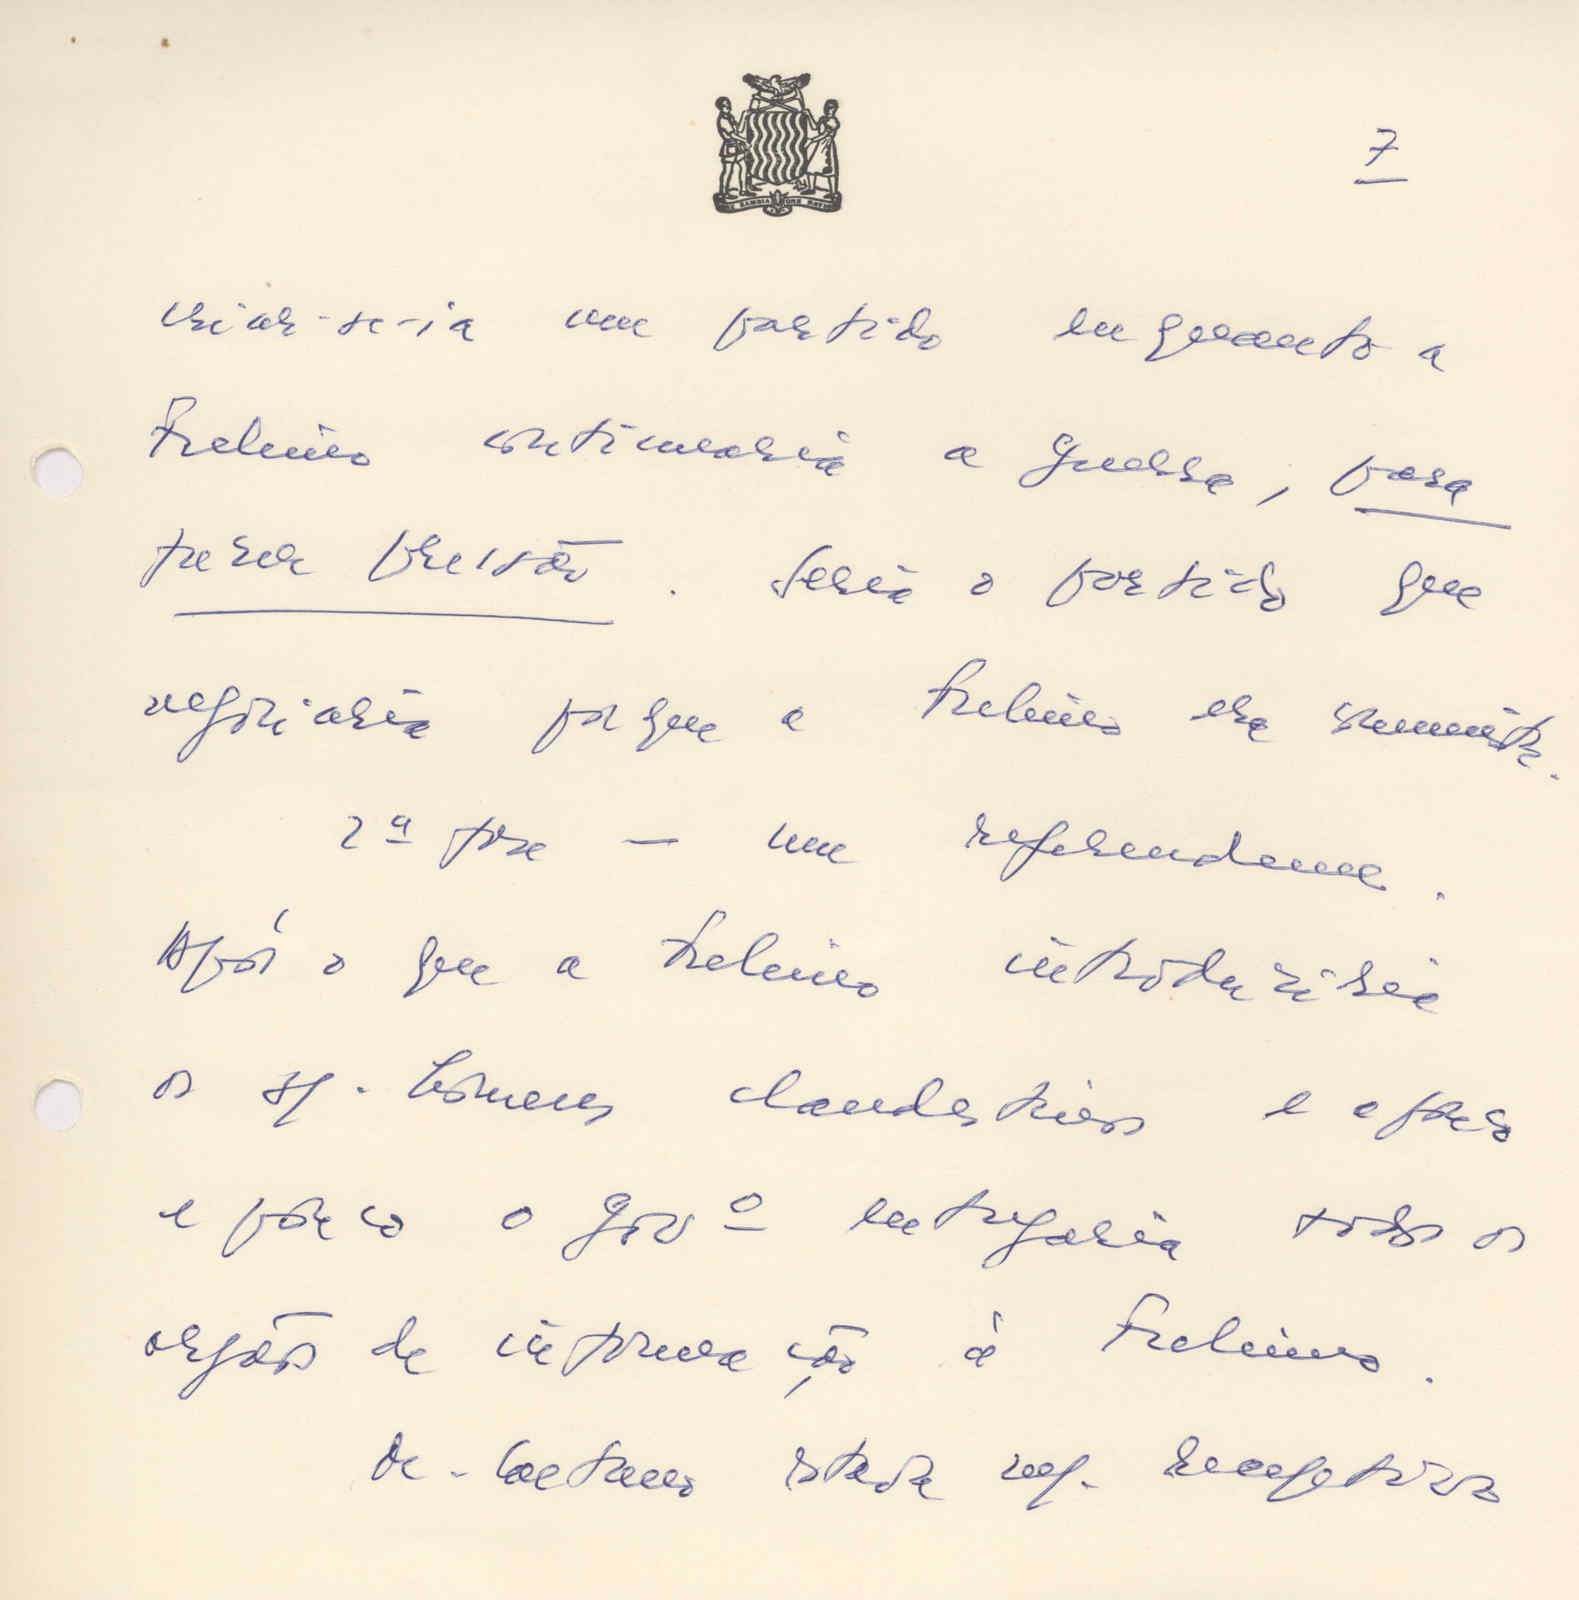 7
criar-se-ia um partido enquanto a
Frelimo continuaria a guerra, para
fazer pressão. Seria o partido que
negociaria porque a Frelimo era comunista.
2ª fase — um referendum.
Após o que a Frelimo introduziria
os s/. homens clandestinos e a pouco
e pouco o govº entregaria todos os
orgãos de informação à Frelimo.
Dr. Caetano estava receptivo